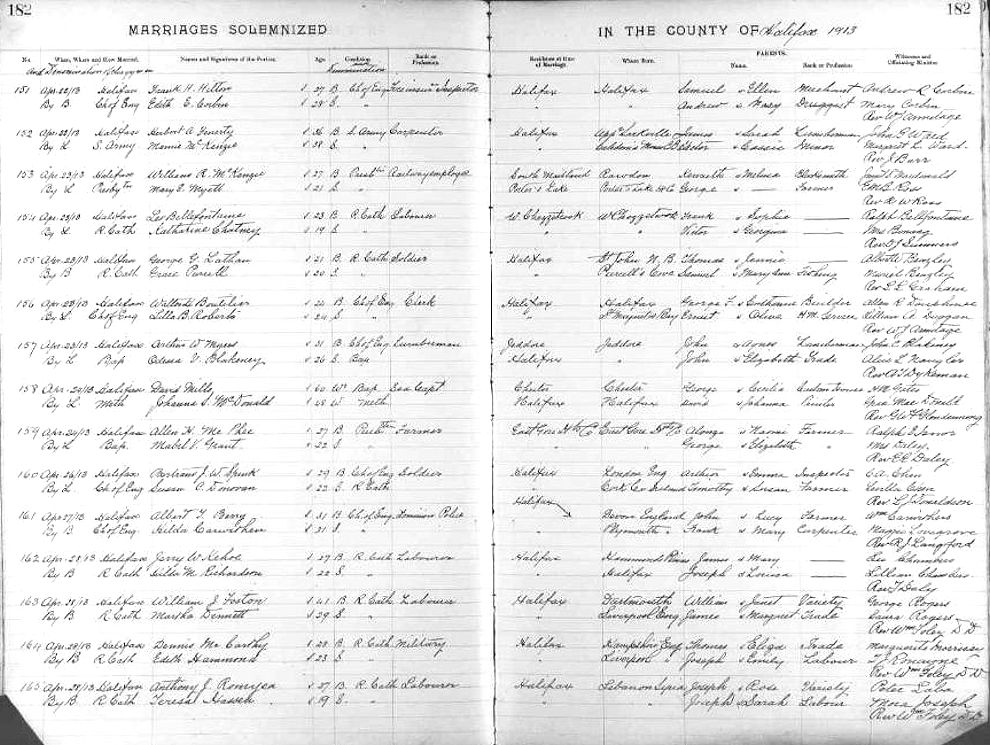 182
182
MARRIAGES SOLEMNIZED
IN THE COUNTY OF Halifax 1913
No. When, Where and How Married. Names and Signatures of the Parties. Age Condition Rank or Profession. Residence at time of Marriage. Where Born. PARENTS. Name. Rank or Profession. Witnesses and Officiating Minister
And Denomination of Clergyman Denomination
151 Apr. 22/13 Halifax Frank H. Hilton 27 B. Ch of Eng Inspector Halifax Halifax Samuel & Ellen Merchant Andrew R Corbin
By B Ch of Eng Edith E. Corbin 28 S. " " " Andrew & Mary Druggist Mary Corbin
Rev W Armitage
152 Apr. 22/13 Halifax Hubert A. 26 B. S. Army Carpenter Halifax Sackville James & Sarah Lumberman John G Ward
By L S. Army Mamie McKenzie 28 S. " " & Cassie Minor Margaret L. Ward
Rev J Barr
153 Apr. 23/13 Halifax William R. McKenzie 27 B Railway employee South Maitland Rawdon & Melissa Blacksmith McDonald
By L Mary E. Myett 21 S. Porter's Lake Porter's Lake George & — Farmer E M B Ross
Rev A W Ross
154 Apr. 23/13 Halifax Leo Bellefontaine 23 B. R. Cath Labourer W Chezzetcook W Chezzetcook Frank & Sophia — Ralph Bellefontaine
By L R. Cath Katharine 19 S. " " " Victor & Georgina — Mrs
Rev Summers
155 Apr. 23/13 Halifax George G. Lathan 21 B. R. Cath Soldier Halifax St John N. B. Thomas & Jennie — Bingley
By B R. Cath Grace Purcell 20 S. " " Purcell's Cove Samuel & Mary Ann Fishing Muriel Bingley
Rev Graham
156 Apr. 23/13 Halifax Walter L Boutilier 24 B. Ch of Eng Clerk Halifax Halifax George F. & Catherine Builder Allen R
By L. Ch of Eng Lilla B. Roberts 24 S. " " St Margarets Bay Ernest & Olive H.M. Service Lillian A. Duggan
Rev W J Armitage
157 Apr. 23/13 Halifax Arthur W Myers 31 B. Ch of Eng Lumberman Jeddore Jeddore John & Agnes Lumberman John C. Blakeney
By L Bap Odessa V. Blakeney 26 S. Bap Halifax " John & Elizabeth Trade Alice L
Rev Dykeman
158 Apr. 24/13 Halifax David Mills 60 Wr Bap Sea Capt Chester Chester George & Cecilia
By L Meth Johanna S. McDonald 48 W. Meth Halifax Halifax David & Johanna
Rev Glendenning
159 Apr. 24/13 Halifax Allen H. McPhee 27 B. Farmer East Gore East Gore Alonzo & Naomi Farmer Ralph E
By L Bap. Mabel V. Grant 22 S. " " " George & Elizabeth " Mrs Daley
Rev Daley
160 Apr. 26/13 Halifax Bertram J. W. Spunk 29 B. Ch of Eng Soldier Halifax London Eng Arthur & Emma Inspector
By L. Ch of Eng Susan C. Donovan 22 S. R. Cath " Cork Co Ireland Timothy & Susan Farmer
Rev Donaldson
161 Apr 27/13 Halifax Albert T. Berry 31 B. Ch of Eng Dominion Police Halifax Devon England John & Lucy Farmer Wm Carruthers
By B Ch of Eng Hilda Carruthers 21 S. " " Plymouth " Frank & Mary Carpenter Maggie Lovegrove
Rev R J Langford
162 Apr. 28/13 Halifax Jerry W Kehoe 27 B. R. Cath Labourer Halifax Hammonds Plains James & Mary — Leo Chambers
By B R. Cath Hilda M. Richardson 22 S. " " Halifax Joseph & Louisa — Lillian Chambers
Rev Daly
163 Apr. 28/13 Halifax William J Foston 41 B. R. Cath Labourer Halifax Dartmouth William & Janet Variety George Rogers
By B R. Cath Martha Dennett 39 S. " " Liverpool Eng James & Margaret Trade Laura Rogers
Rev Wm Foley D.D
164 Apr. 28/13 Halifax Dennis McCarthy 28 B. R. Cath Military Halifax Hampshire Eng Thomas & Eliza Trade Marguerite Morrison
By B R. Cath Edith Hammond 23 S. " " Liverpool " Joseph & Emily Labour
Rev Wm Foley D D
165 Apr. 28/13 Halifax Anthony J. 27 B. R. Cath Labourer Halifax Lebanon Syria Joseph & Rose Variety Peter Laba
By B R. Cath Teresa 19 S. " " " Joseph & Sarah Labour Joseph
Rev Wm Foley D.D.